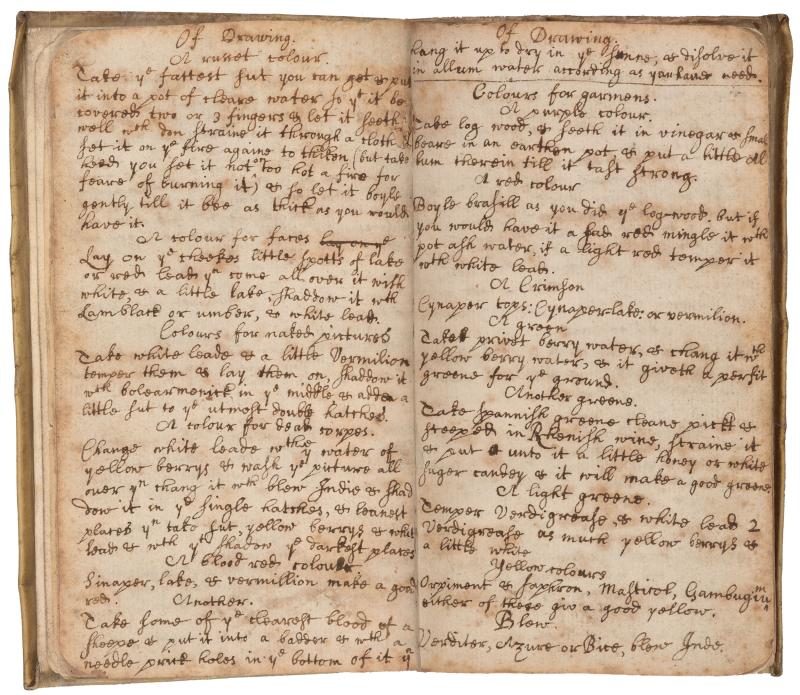 Of Drawing.
A russet colour.
Take ye fattest sut you can get & put
it into a pot of cleare water so yt it be
covered two or 3 fingers & let it seeth
well wch don straine it through a cloth &
set it on ye fire againe to thiken (but take
heed you set it not too hot a fire for
feare of burning it) & so let it boyle
gently till it bee as thick as you would
have it.
A colour for faces
Lay on ye cheekes little spotts of lake
or red lead yn come all over it with
white & a little lake, shaddow it wth
Lamblack or umber, & white lead.
Colours for naked pictures
Take white leade & a little Vermilion
temper them & lay them on, shaddow it
wth bolearmonick in ye middle & adde a
little sut to ye utmost double hatches.
A colour for dead corpes.
Change white leade wth ye water of
yellow berrys & wash ye picture all
over yn chang it wth blew Indie & shad
dow it in ye single hatches, & leanest
places yn take sut, yellow berrys & white
lead & wth yt shadow ye darkest places
A blood red colour
Sinaper, lake, & vermillion make a good
red. Another.
Take some of ye clearest blood of a
sheepe & put it into a badder & wth a
needle prick holes in ye bottom of it yn
Of Drawing.
hang it up to dry in ye sunne, & disolve it
in allum water according as you have need.
Colours for garmens.
A purple colour.
Take log wood, & seeth it in vinegar & small
beare in an earthen pot, & put a little al
lum therein till it tast strong.
A red colour
Boyle brasill as you did ye log-wood, but if
you would have it a sad red mingle it wth
pot ash water, if a light red temper it
wth white lead.
A Crimson
Cynaper tops: Cynaperlake: or vermilion.
A green
Take privet berry water, & chang it wth
yellow berry water, & it giveth a perfit
greene for ye ground.
Another greene.
Take spannish greene cleane pickt &
steeped in Rhenish wine, straine it
& put unto it a little honey or white
suger candey & it will make a good greene
A light greene.
Temper Verdigrease, & white lead 2
Verdigrease as much yellow berrys &
a little white
Yellow colours
Orpiment & saphron, Masticol, Gambugium
either of these give a good yellow.
Blew.
Verditer, Azure or Bice, blew Inde.